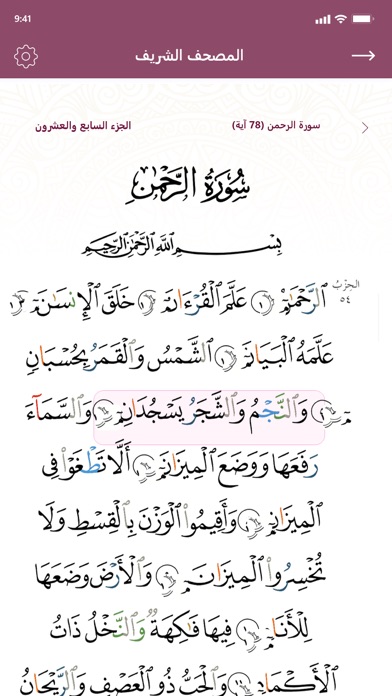 9:41
المصحف الشريف
سورة الرحمن (78 آية) الجزء السابع والعشرون
سُورَةُ الرَّحْمٰنِ
بِسْمِ اللَّهِ الرَّحْمَٰنِ الرَّحِيمِ
الحِزْبُ
٥٤
ٱلرَّحْمَٰنُ عَلَّمَ ٱلْقُرْءَانَ خَلَقَ ٱلْإِنسَٰنَ
عَلَّمَهُ ٱلْبَيَانَ ٱلشَّمْسُ وَٱلْقَمَرُ بِحُسْبَانٍ
وَٱلنَّجْمُ وَٱلشَّجَرُ يَسْجُدَانِ وَٱلسَّمَآءَ
رَفَعَهَا وَوَضَعَ ٱلْمِيزَانَ أَلَّا تَطْغَوْا۟ فِى
ٱلْمِيزَانِ وَأَقِيمُوا۟ ٱلْوَزْنَ بِٱلْقِسْطِ وَلَا
تُخْسِرُوا۟ ٱلْمِيزَانَ وَٱلْأَرْضَ وَضَعَهَا
لِلْأَنَامِ فِيهَا فَٰكِهَةٌ وَٱلنَّخْلُ ذَاتُ
ٱلْأَكْمَامِ وَٱلْحَبُّ ذُو ٱلْعَصْفِ وَٱلرَّيْحَانُ